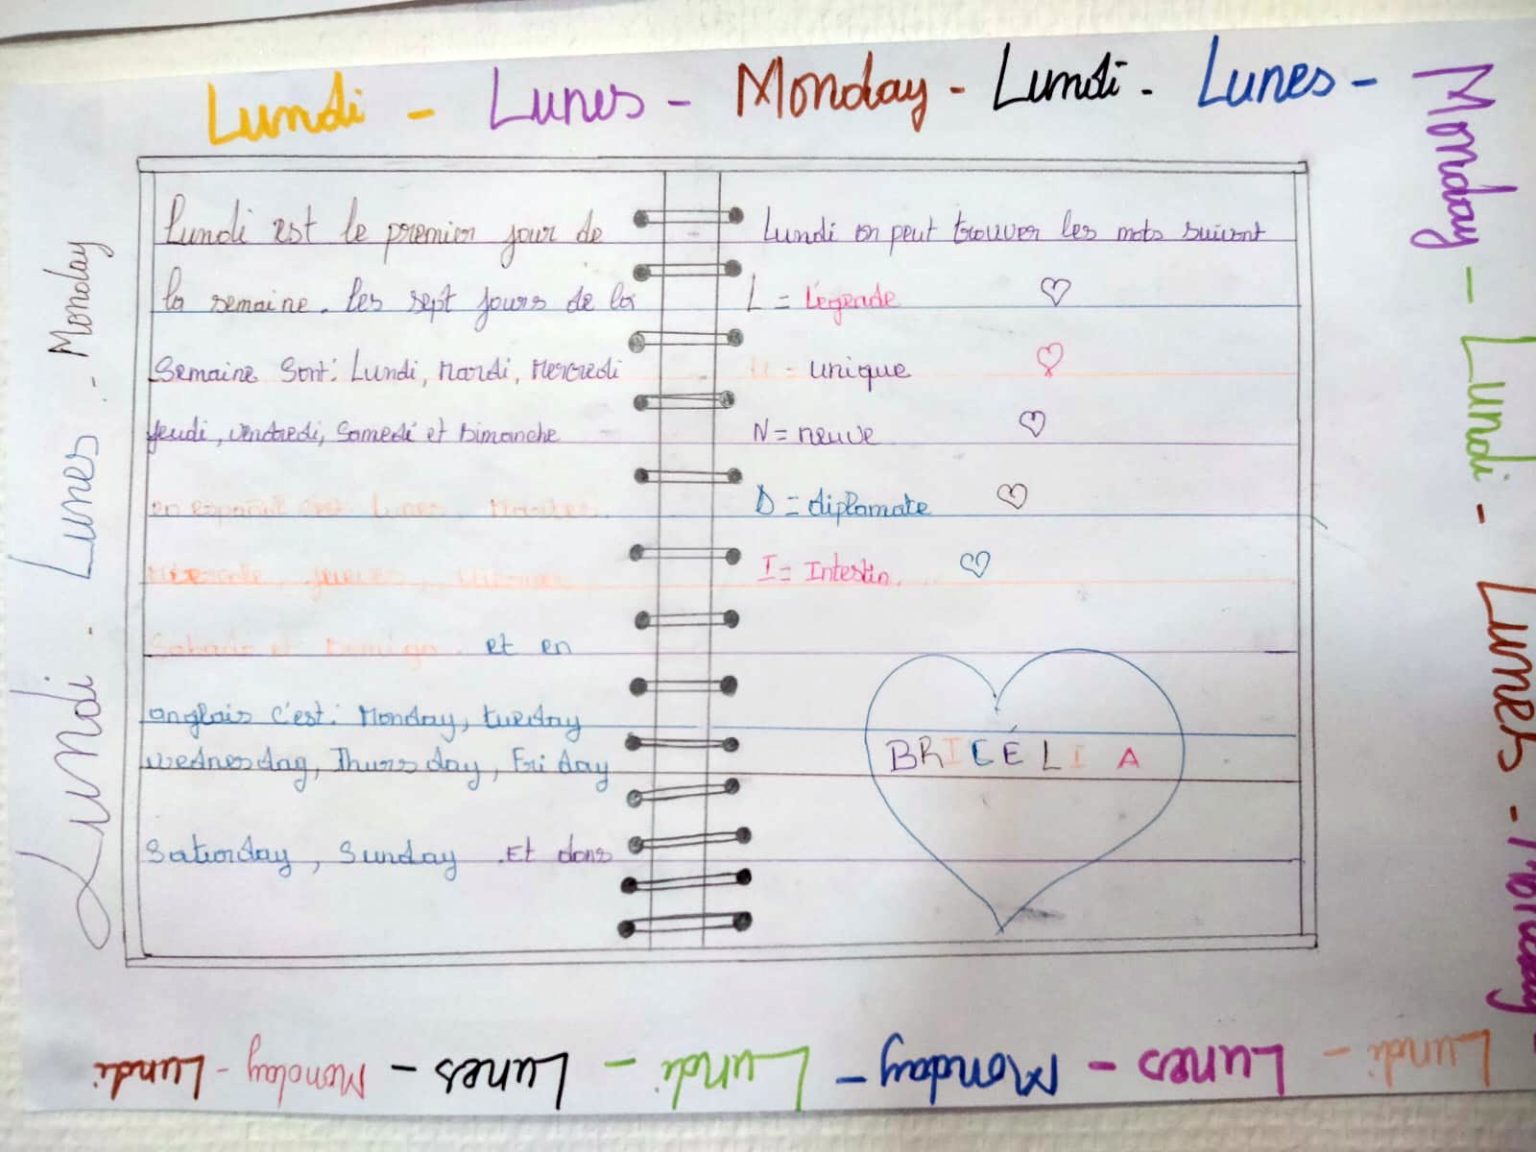 Lundi - Lunes - Monday - Lundi - Lunes -
Monday - Lundi - Lunes - Monday -
Lundi - Lunes - Monday
Lundi est le premier jour de
la semaine. les sept jours de la
Semaine Sont: Lundi, Mardi, Mercredi
jeudi, vendredi, Samedi et Dimanche
en español c'est Lunes, Martes,
Miercole, jueves,
Sabado et Domigo. et en
anglais c'est: Monday, tuesday
wednesday, Thursday, Friday
Saturday, Sunday. Et dans
Lundi on peut trouver les mots suivant
L = Légende
U = unique
N = neuve
D = diplomate
I = Intestin.
BRICÉLIA
Lundi - Lunes - Monday - Lundi - Lunes - Monday - Lundi